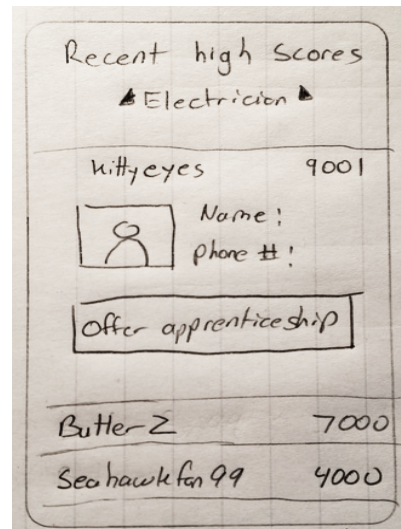 Recent high Scores
Electrician
Kittyeyes 9001
Name:
Phone #:
Offer apprenticeship
Butler Z 7000
Seahawkfan99 4000